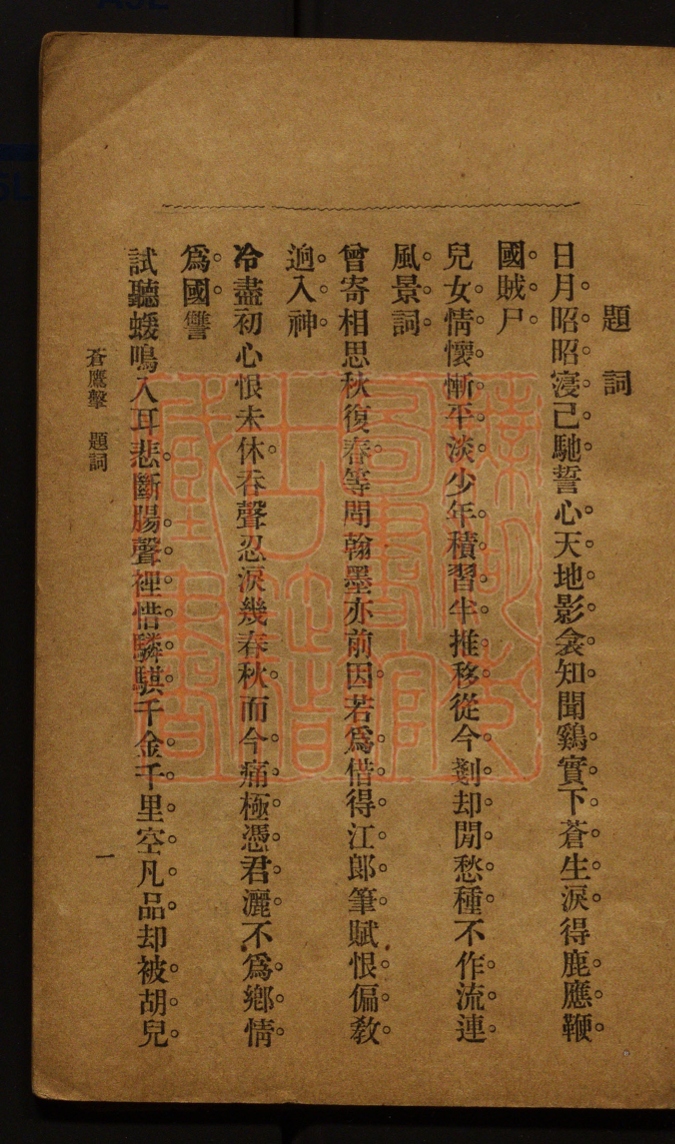 題詞
日月昭昭寖己馳誓心天地影衾知聞鷄實下蒼生淚得鹿應鞭
國賊尸
兒女情懷慚平淡少年積習半推移從今剗却閒愁種不作流連
風景詞
曾寄相思秋復春等閒翰墨亦前因若爲借得江郞筆賦恨偏敎
逈入神
冷盡初心恨未休吞聲忍淚幾春秋而今痛極憑君灑不爲鄕情
爲國讐
試聽蝯鳴入耳悲斷腸聲裡惜驎騏千金千里空凡品却被胡兒
蒼鷹擊 題詞
一